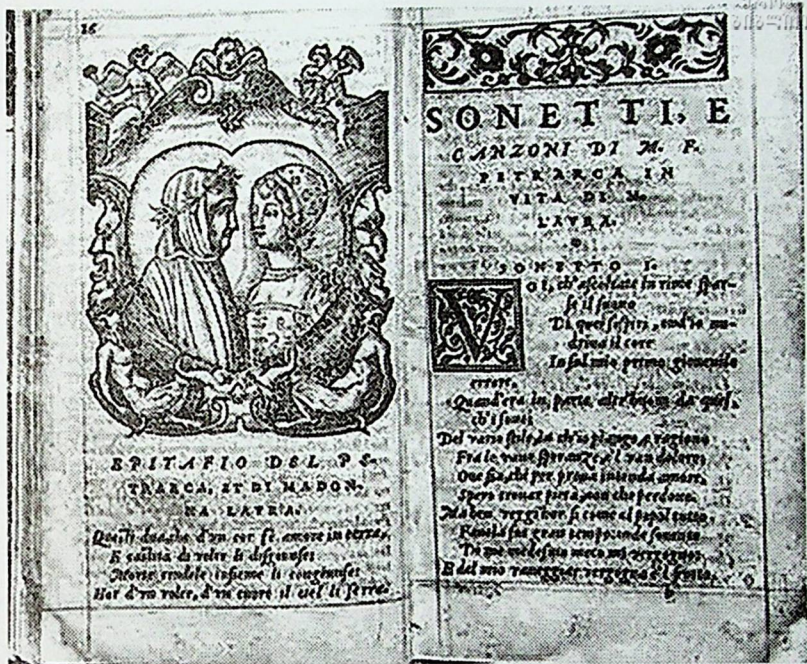 16
EPITAFIO DEL PE-
TRARCA, ET DI MADON-
NA LAVRA.
Questi due, che d'vn cor fè amore in terra,
E castità di voler li disgiunse:
Morte crudele insieme li congiunse:
Hor d'vn voler, d'vn cuore il ciel li serra.
SONETTI, E
CANZONI DI M. F.
PETRARCA IN
VITA DI M.
LAVRA.
SONETTO I.
VOI, ch'ascoltate in rime spar-
se il suono
Di quei sospiri, ond'io nu-
driua il core
In sul mio primo giouenile
errore,
Quand'era in parte altr'huom da quel,
ch'i sono;
Del vario stile, in ch'io piango, e ragiono
Fra le vane speranze, e'l van dolore;
Oue sia, chi per proua intenda amore,
Spero trouar pietà, non che perdono.
Ma ben veggi'hor, si come al popol tutto
Fauola fui gran tempo: onde souente
Di me medesmo meco mi vergogno:
E del mio vaneggiar vergogna è'l frutto,